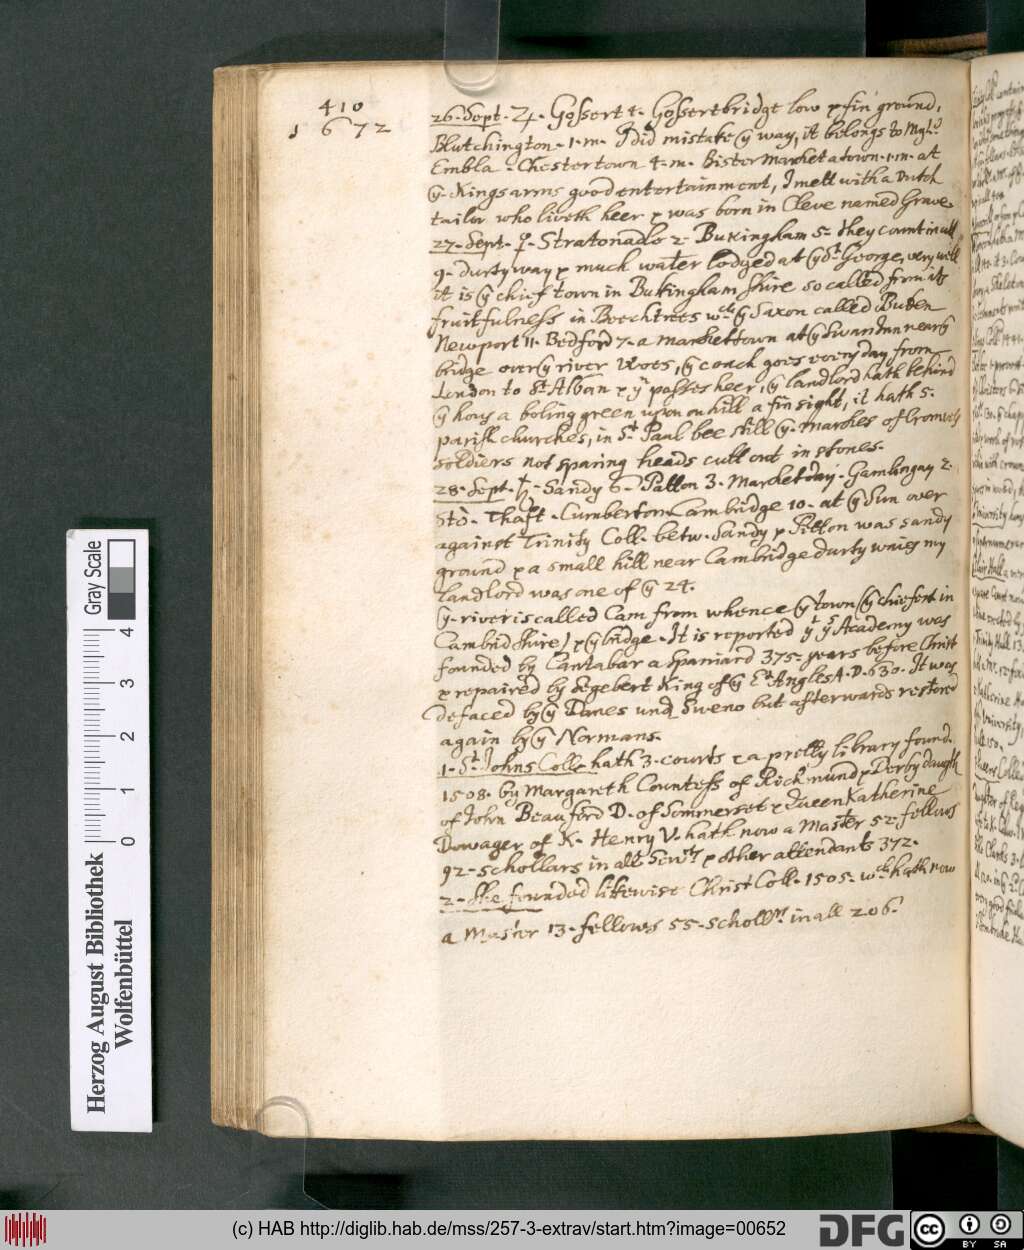 410
1672
26. Sept. ♃. Gossert 4. Gossertbridge low & fin ground,
Blutchington. 1. m. I did mistake ye way, it belongs to
Embla. Chestertown 4. m. Bister market a town. 1. m. at
ye. Kings arms good entertainment, I mett with a Dutch
tailor who liveth heer & was born in Cleve named Grave.
27. Sept. ♀. Stratonadlo 2. Bukingham 5. they count in all
9. durty way & much water lodged at ye St. George, very well
it is ye chief town in Bukingham shire so called from its
fruitfulness in Beechtrees wch ye Saxon called Buken
Newport 11. Bedford 7. a market town at ye Swan Inn near ye
bridge over ye river Uoes, ye coach goes every day from
London to St. Alban & yt passes heer, ye landlord hath behind
ye hous a boling green upon on hill a fin sight, it hath 5.
parish churches, in St. Paul bee still ye. markes of Cromvels
soldiers not sparing heads cutt out in stones.
28. Sept. ♄. Sandy 6. Patton 3. Market day. Gamlingay 2.
Sto. Thaft. Cumberton Cambridge 10. at ye Sun over
against Trinity Coll. betw. Sandy & Potton was sandy
ground & a small hill near Cambridge durty waies my
landlord was one of ye 24.
ye. river is called Cam from whence ye town (ye chiefest in
Cambrid shire) & ye bridge. It is reported yt ys Academy was
founded by Cantabar a Spaniard 375. years before Christ
& repaired by Segebert King of ye Est Angles A. D. 630. It was
defaced by ye Danes und Sweno but afterwards restored
again by ye Normans.
1. St. Johns Coll. hath 3. courts & a pretty library found.
1508. by Margareth Countess of Richmund & Derby daugth
of John Beauford D. of Sommerset & Queen Katherine
Dowager of K. Henry V. hath now a Master 52. fellows
92. schollars in all & other attendants 372.
2. She founded likewise Christ Coll. 1505. wch hath now
a Master 13. fellows 55. scholl. in all 206.
Herzog August Bibliothek
Wolfenbüttel
Gray Scale
0 1 2 3 4
(c) HAB http://diglib.hab.de/mss/257-3-extrav/start.htm?image=00652
DFG
cc BY SA